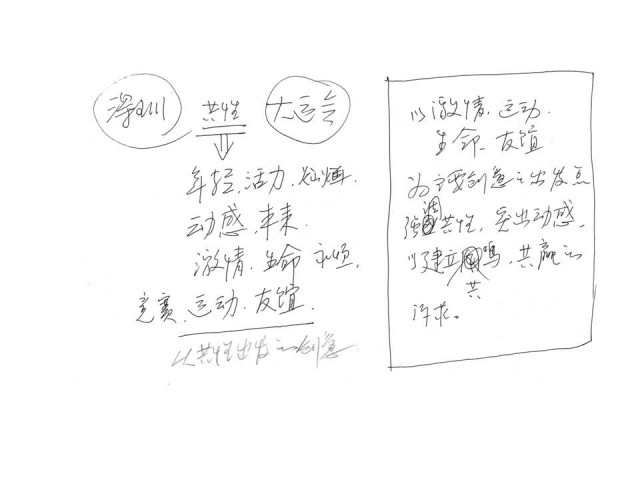 深圳 共性 大运会
年轻、活力、灿烂、
动感、未来、
激情、生命、永恒、
竞赛、运动、友谊
从共性出发的创意
以激情、运动、
生命、友谊
为主要创意之出发点
强调共性，突出动感，
以建立共鸣，共赢的
诉求。